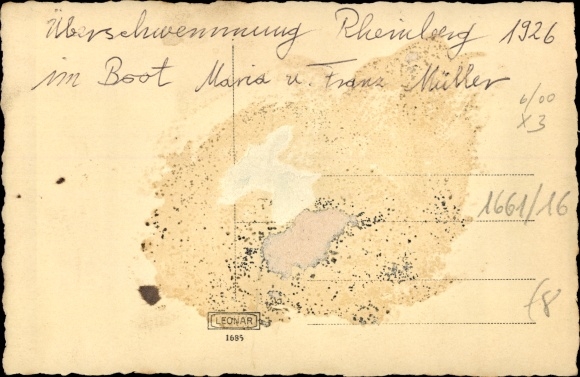 Überschwemmung Rheinberg 1926
im Boot Maria u. Franz Müller
6/00
X3
1661/16
(8
LEONAR
1685